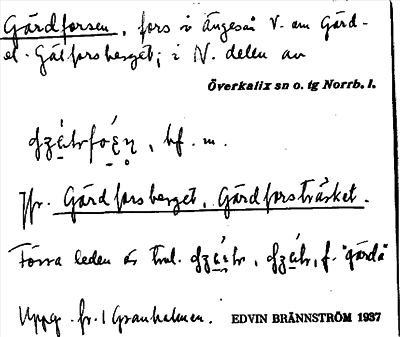 Gårdforsen, fors i Ängesån V. om Gård-
el. Gålforsberget; i N. delen av
Överkalix sn o. tg Norrb. l.
bf. m.
Jfr. Gårdforsberget, Gårdforsträsket.
Förra leden är trol. f. "gärda"
Uppg. fr. i Granholmen. EDVIN BRÄNNSTRÖM 1937